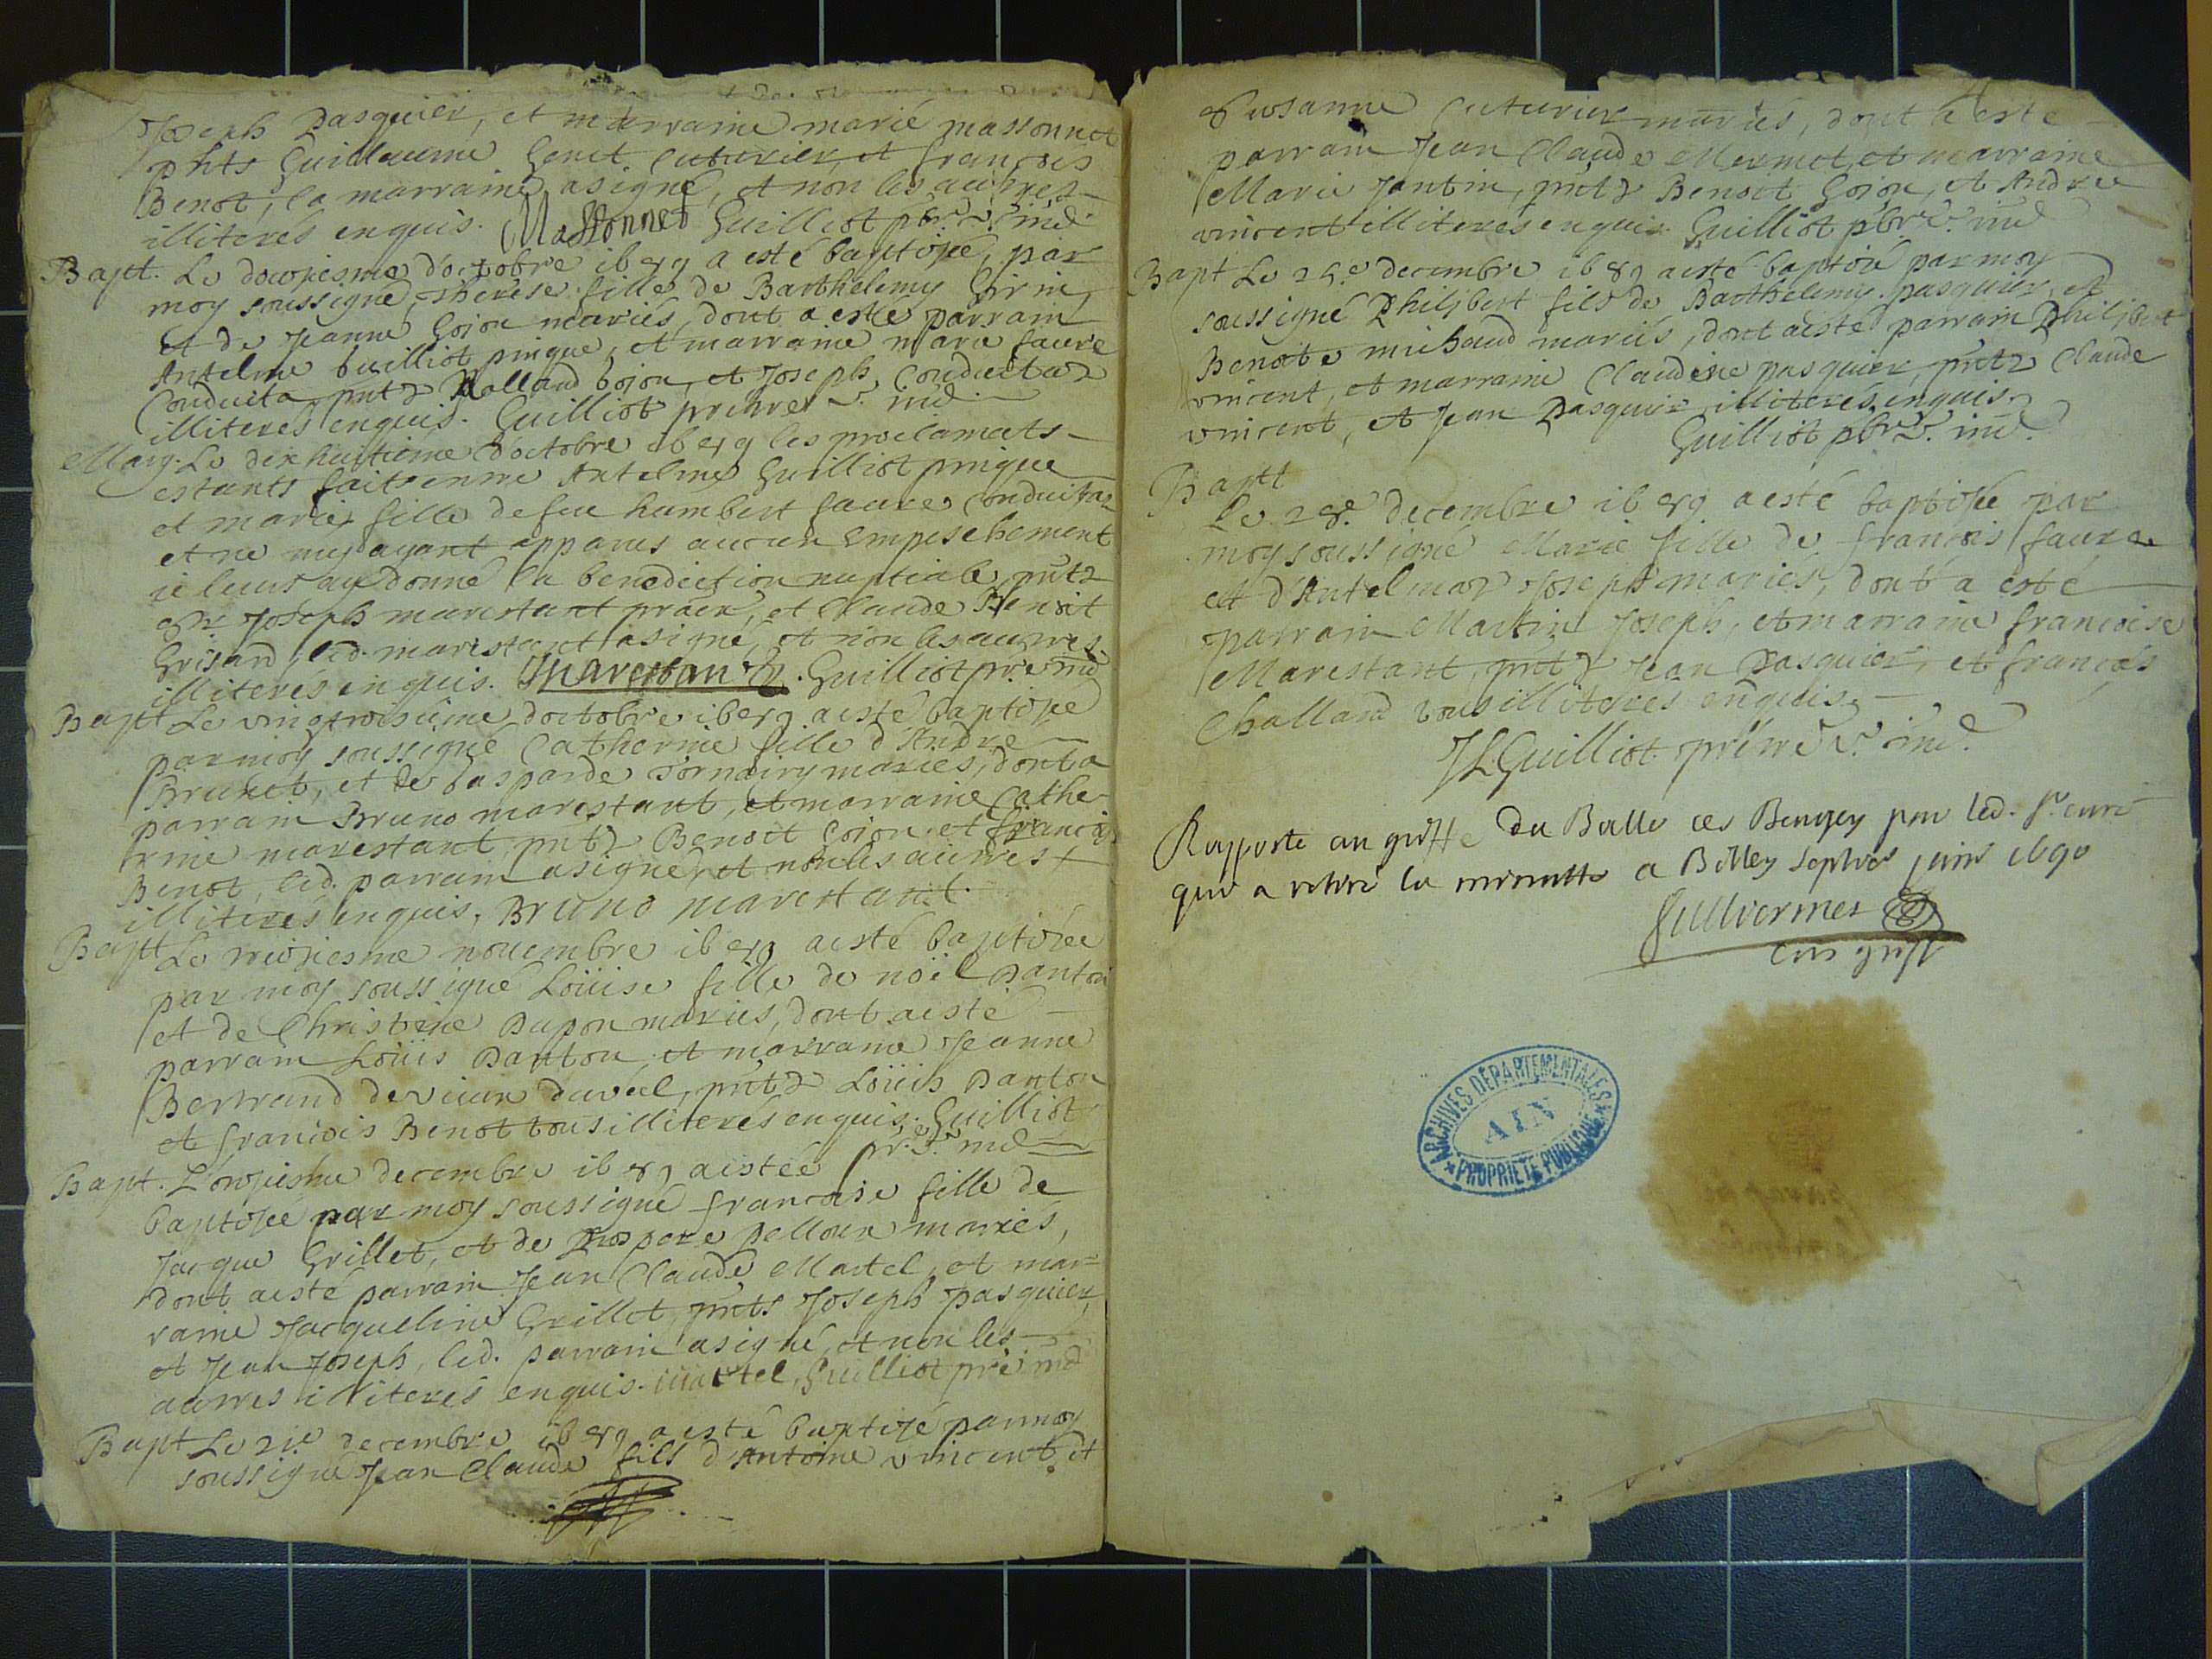 Joseph Pasquier, et marraine marie massonnet
pnts Guillaume Genet Cuturier, et françois
Benot, la marraine a signé, et non les autres
illiterés enquis. Massonnet Guilliot pbre v. ind
Bapt. Le douziesme d'octobre 1689 a esté baptisée, par
moy soussigné, therese fille de Barthelemy Girin,
et de Jeanne Gojon mariés, dont a esté parrain
Antelme Guilliot pingue, et marraine marie faure
Conduita pntz Rolland Gojon, et Joseph Conduitaz
illiterés enquis. Guilliot prieur v. ind
Mary. Le dix huitieme d'octobre 1689 les proclamats
estants faits entre Antelme Guilliot pingue
et marie fille de feu humbert faure Conduitaz
et ne m'ayant apparus aucun empeschement
je leurs ay donné la benediction nuptiale, pntz
Joseph marestant et Claude Benoit
Grisard, led. marestant a signé, et non les autres
illiterés enquis. Marestan. Guilliot pre v. ind
Bapt Le vingtroisieme d'octobre 1689 a esté baptisée
par moy soussigné Catherine fille d'André
Brunet, et de Gasparde mariés, dont a
parrain Bruno marestant, et marraine Cathe-
rine marestant, pntz Benoit Gojon et françois
Benot, led. parrain a signé, et non les autres
illiterés enquis. Bruno marestant.
Bapt Le treiziesme novembre 1689 a esté baptisée
par moy soussigné Loüise fille de noël Danton
et de Christine Dupon mariés, dont a esté
parrain Loüis Danton et marraine Jeanne
Bertrand de pntz Loüis Danton
et françois Benot tous illiterés enquis. Guilliot
pr. v. ind
Bapt. L'onziesme decembre 1689 a estée
baptisée par moy soussigné francoise fille de
Jacque Grillet, et de Prospere Pelloux mariés,
dont a esté parrain Jean Claude Martel, et mar-
raine Jacqueline Grillet, pnts Joseph pasquier,
et Jean Joseph, led. parrain a signé, et non les
autres illiterés enquis. Martel, Guilliot pre ind
Bapt Le 21e decembre 1689 a esté baptisé par moy
soussigné Jean Claude fils d'Antoine vincent, et
Susanne Cuturier mariés, dont a esté
parrain Jean Claude Mermet, et marraine
Marie Jantin, pntz Benoit Gojon, et André
vincent illiterés enquis. Guilliot pbre v. ind
Bapt Le 25e decembre 1689 a esté baptisé par moy
soussigné Philibert fils de Barthelemy pasquier, et
Benoite michaud mariés, dont a esté parrain Philibert
vincent, et marraine Claudine pasquier, pntz Claude
vincent, et Jean Pasquier illiterés enquis.
Guilliot pbre v. ind
Baptt
Le 28e decembre 1689 a esté baptisée par
moy soussigné Marie fille de francois faure
et d'Antelmaz Joseph mariés, dont a esté
parrain Martin Joseph, et marraine francoise
Marestant, pntz Jean Pasquier, et françois
Challand tous illiterés enquis.
JL Guilliot prieur v. ind.
Rapporté au greffe du Balle de Beugey par led. Sr curé
qui a retiré la minutte a Belley septies juin 1690
Guilvermes
com greff
ARCHIVES DÉPARTEMENTALES
AIN
PROPRIÉTÉ PUBLIQUE